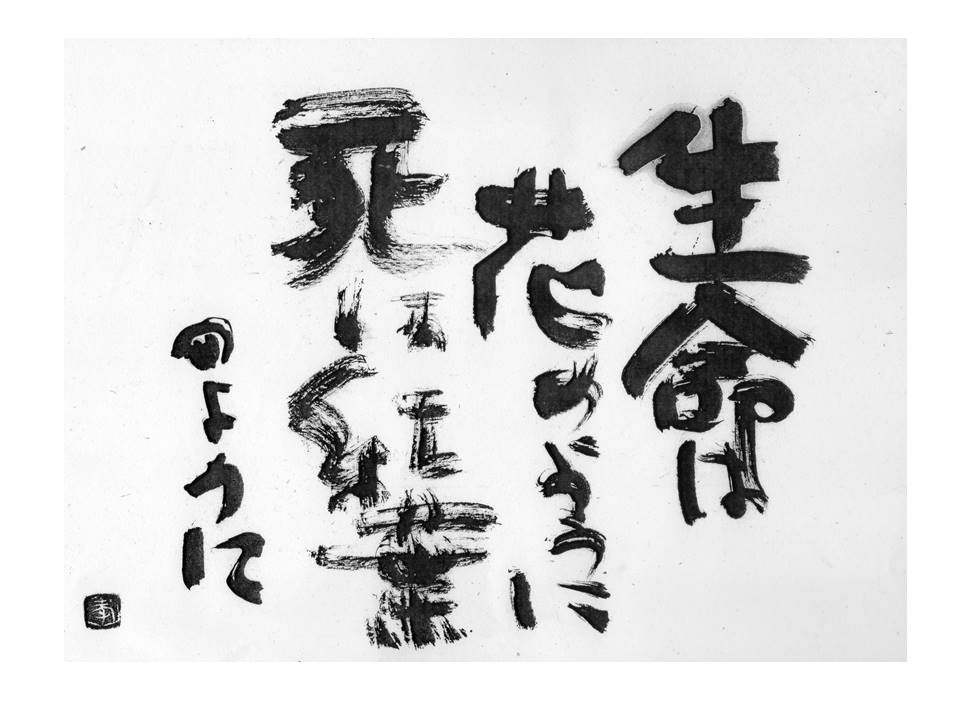 生命は
花のように
死は紅葉
のように